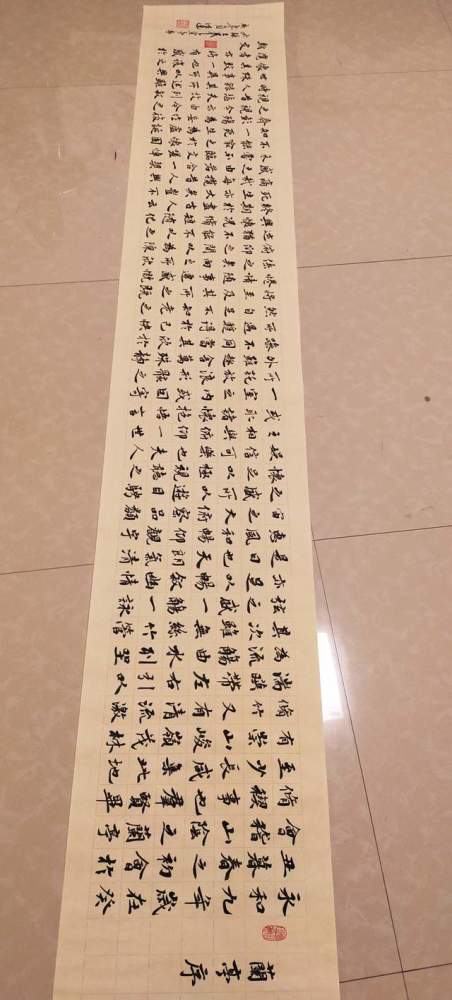 蘭亭序
永和九年歲在癸
丑暮春之初會於
會稽山陰之蘭亭
脩禊事也羣賢畢
至少長咸集此地
有崇山峻嶺茂林
脩竹又有清流激
湍映帶左右引以
為流觴曲水列坐
其次雖無絲竹管
弦之盛一觴一詠
亦足以暢敘幽情
是日也天朗氣清
惠風和暢仰觀宇
宙之大俯察品類
之盛所以遊目騁
懷足以極視聽之
娛信可樂也夫人
之相與俯仰一世
或取諸懷抱悟言
一室之內或因寄
所託放浪形骸之
外雖趣舍萬殊靜
躁不同當其欣於
所遇暫得於己快
然自足不知老之
將至及其所之既
惓情隨事遷感慨
係之矣向之所欣
俛仰之間已為陳
迹猶不能不以之
興懷況脩短隨化
終期於盡古人云
死生亦大矣豈不
痛哉每攬昔人興
感之由若合一契
未嘗不臨文嗟悼
不能喻之於懷固
知一死生為虛誕
齊彭殤為妄作後
之視今亦由今之
視昔悲夫故列敘
時人錄其所述雖
世殊事異所以興
懷其致一也後之
攬者亦將有感於
斯文